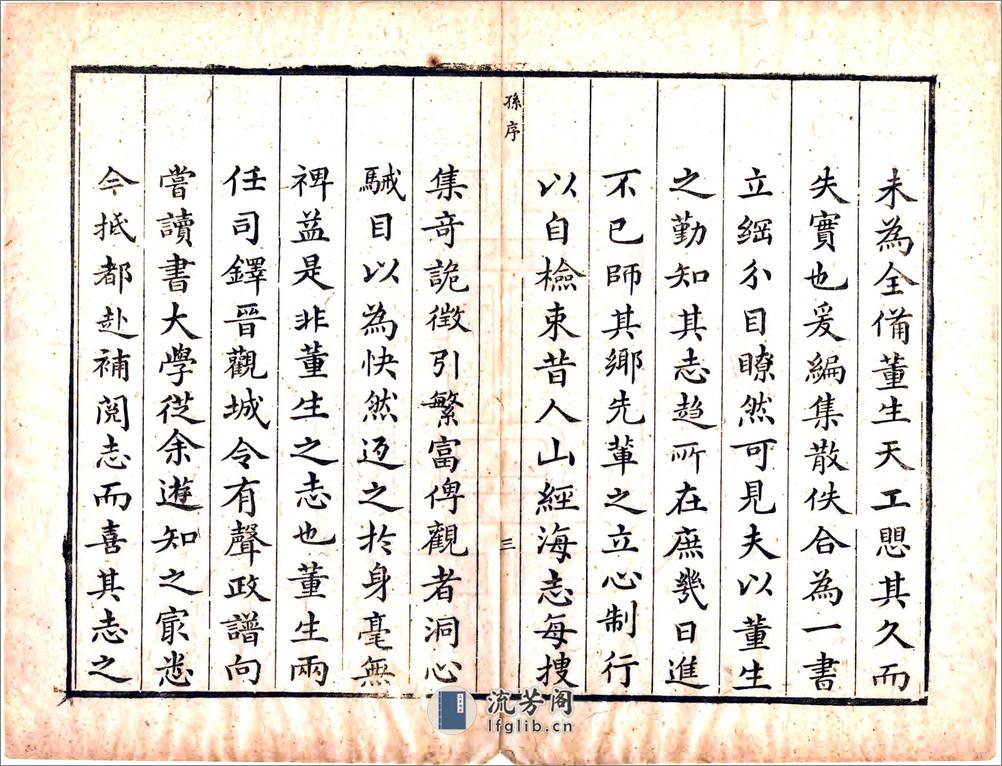 未為全備董生天工思其久而
失實也爰編集散佚合為一書
立綱分目瞭然可見夫以董生
之勤知其志趋所在庶幾日進
不已師其鄉先輩之立心制行
以自檢束昔人山經海志每搜
孫序
三
集奇詭徴引繁富俾觀者洞心
駴目以為快然迈之於身毫無
裨益是非董生之志也董生兩
任司鐸晉觀城令有聲政譜向
嘗讀書大學從余遊知之㝡悉
今抵都赴補閱志而喜其志之
流芳阁
lfglib.cn